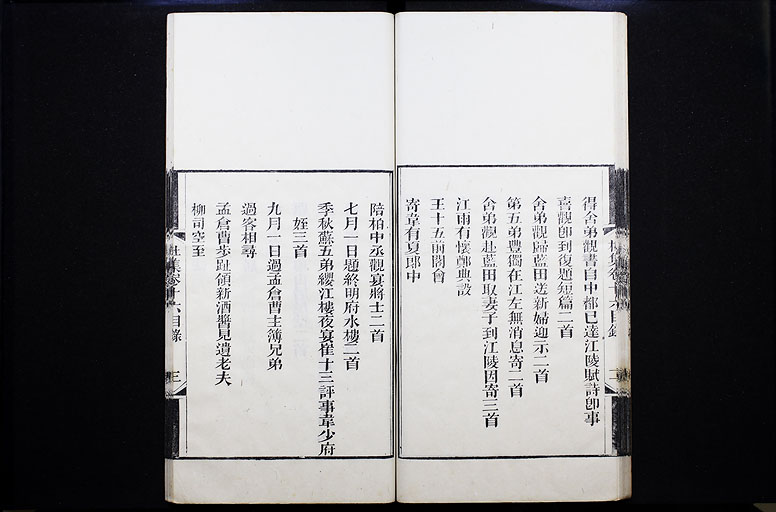 得舍弟觀書自中都已達江陵賦詩卽事
喜觀卽到復題短篇二首
舍弟觀歸藍田送新婦迎示二首
第五弟豐獨在江左無消息寄二首
舍弟觀赴藍田取妻子到江陵因寄三首
江雨有懷鄭典設
王十五前閣會
寄韋有夏郎中
陪柏中丞觀宴將士二首
七月一日題終明府水樓二首
季秋蘇五弟纓江樓夜宴崔十三評事韋少府
姪三首
九月一日過孟倉曹主簿兄弟
過客相尋
孟倉曹步趾領新酒醬見遺老夫
柳司空至
杜集卷十六目錄
三